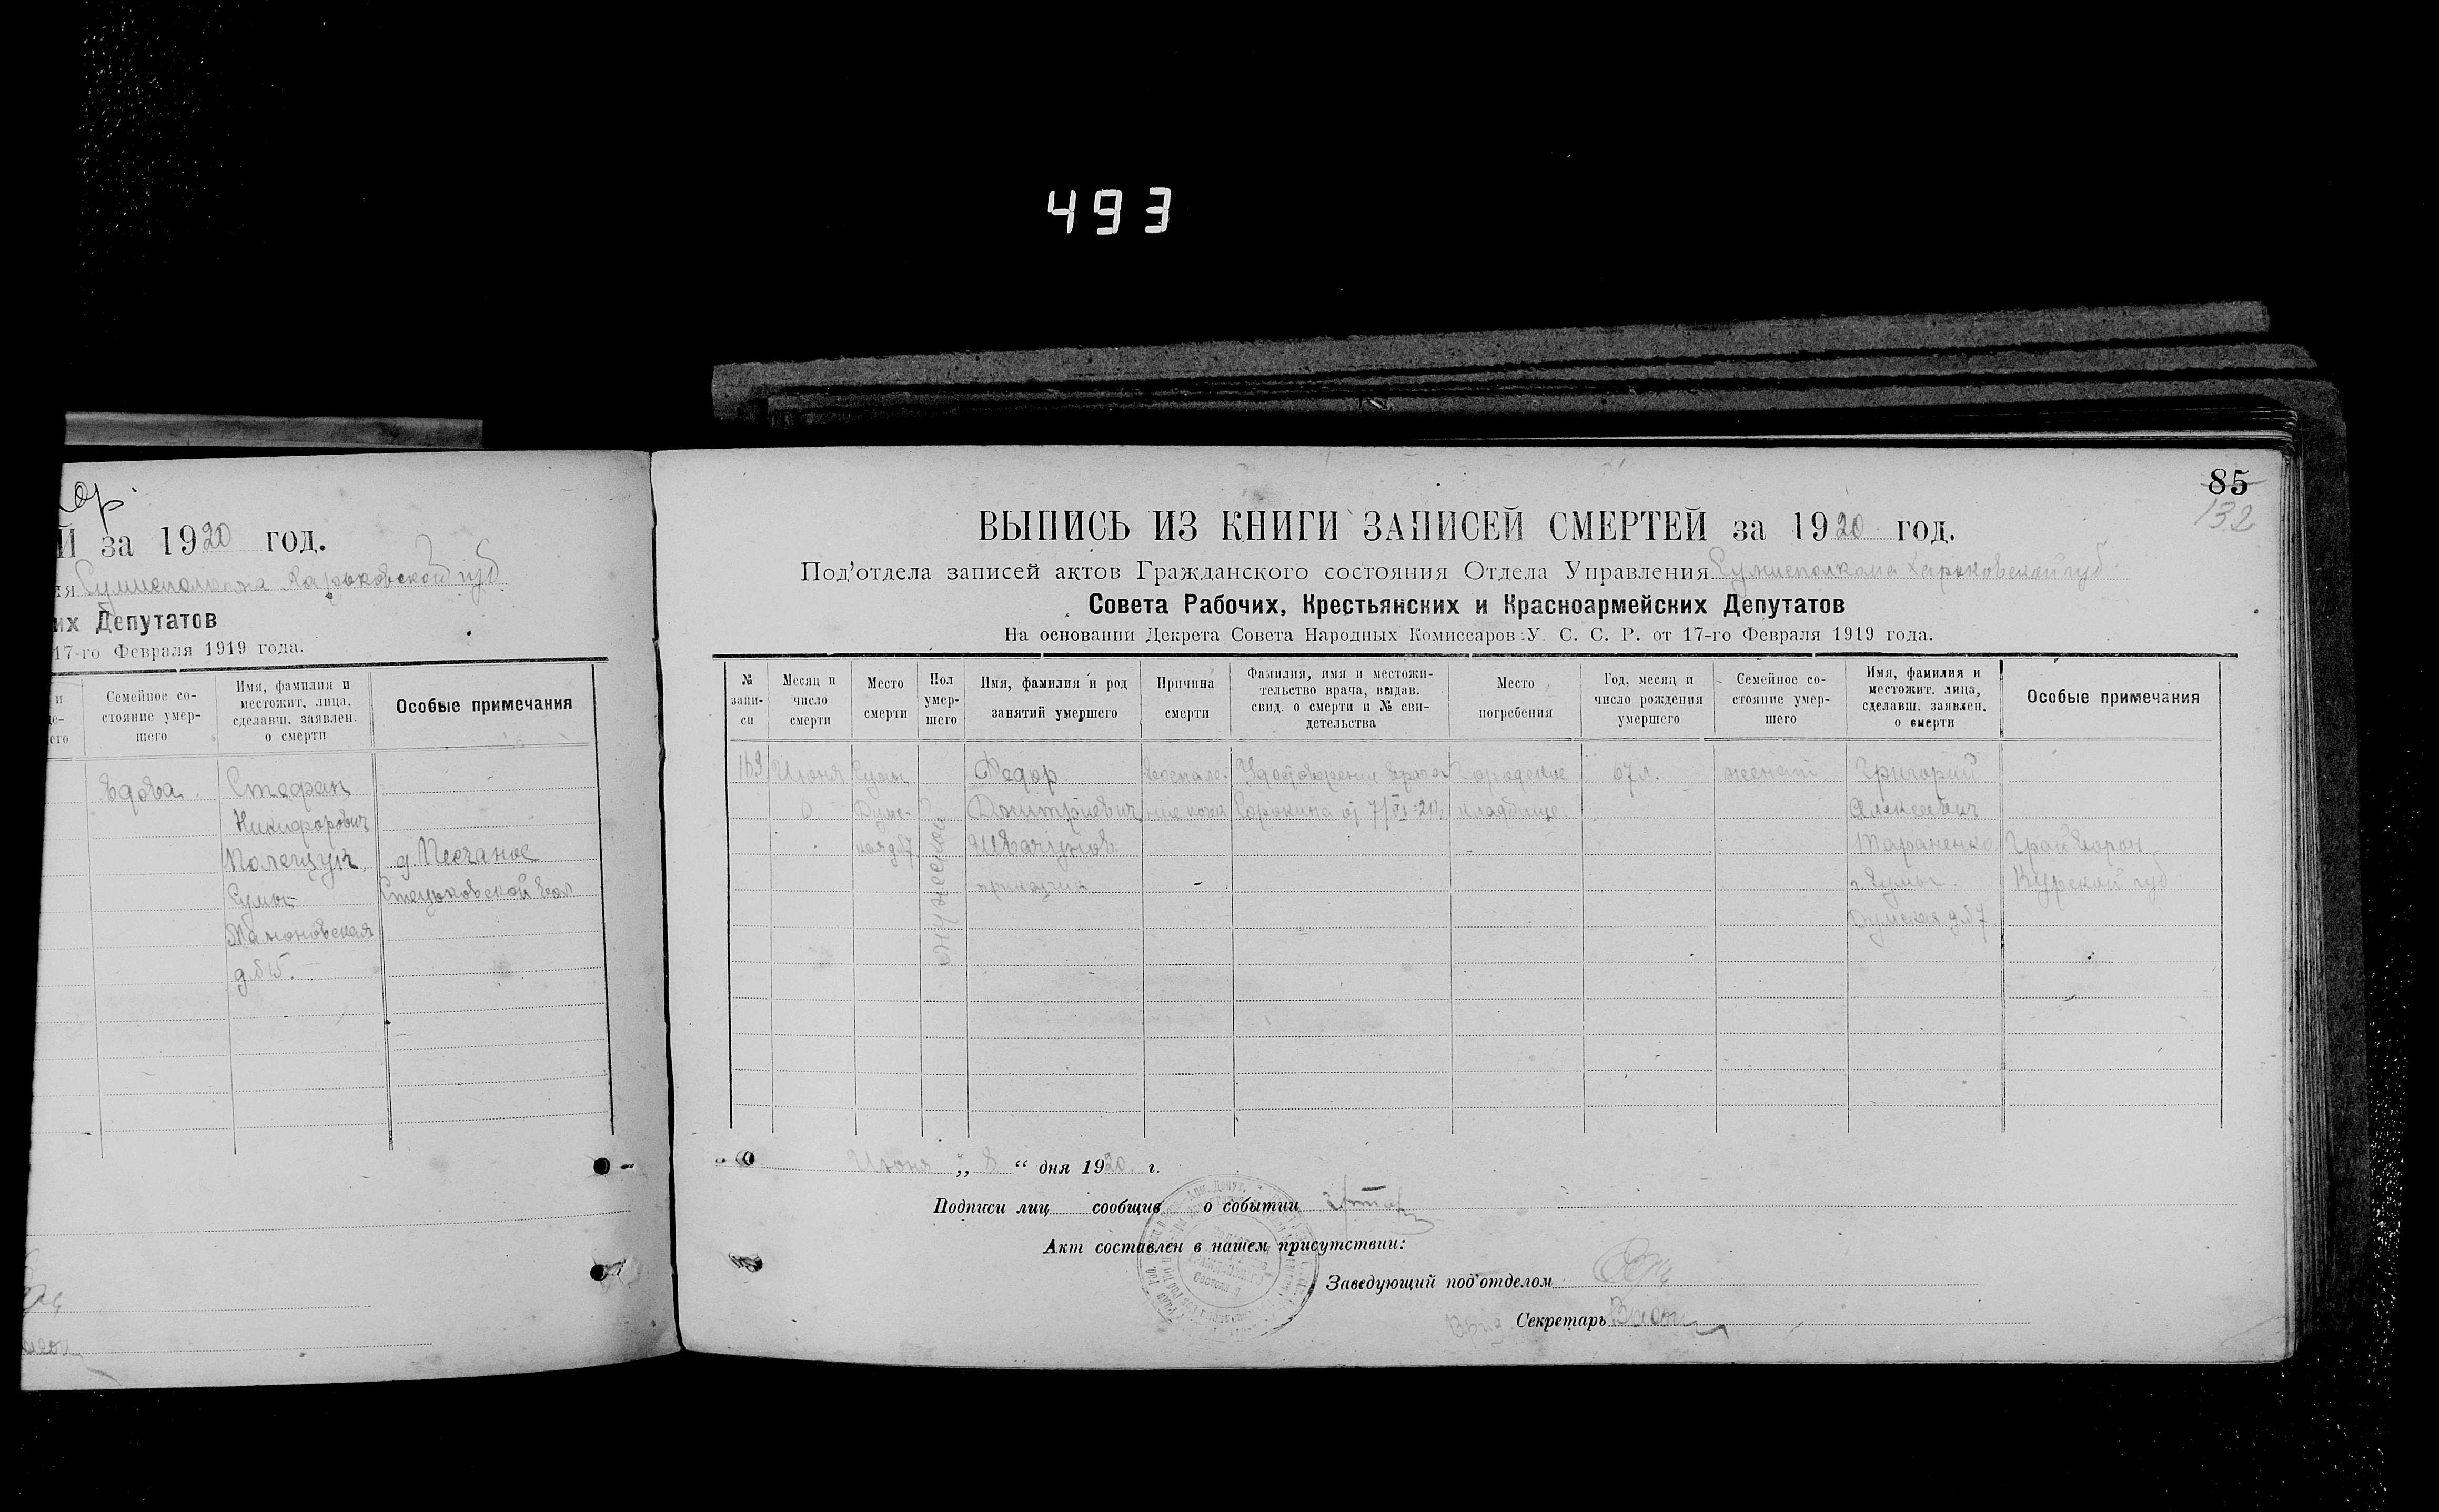 493
ор.
Й за 1920 год.
ия Сумисполкома Харьковской губ
их Депутатов
17-го Февраля 1919 года.
и
его
Семейное со-
стояние умер-
шего
Имя, фамилия и
местожит. лица,
сделавш. заявлен.
о смерти
Особые примечания
вдова
Стефан
Никифорович
Полещук
д. Песчаное
Сумы
Стецьковской вол
д. №15.
85
132
ВЫПИСЬ ИЗ КНИГИ ЗАПИСЕЙ СМЕРТЕЙ за 1920 год.
Под'отдела записей актов Гражданского состояния Отдела Управления Сумисполкома Харьковской губ
Совета Рабочих, Крестьянских и Красноармейских Депутатов
На основании Декрета Совета Народных Комиссаров У. С. С. Р. от 17-го Февраля 1919 года.
№
запи-
си
Месяц и
число
смерти
Место
смерти
Пол
умер-
шего
Имя, фамилия и род
занятий умершего
Причина
смерти
Фамилия, имя и местожи-
тельство врача, выдав.
свид. о смерти и № сви-
детельства
Место
погребения
Год, месяц и
число рождения
умершего
Семейное со-
стояние умер-
шего
Имя, фамилия и
местожит. лица,
сделавш. заявлен.
о смерти
Особые примечания
169 Июня Сумы Федор воспале- Удостоверение врача Городское 67 л. женат Григорий
6 Думс- Дмитриевич ние почек Сорокина от 7/VI-20 кладбище Алексеевич
кая д№7 Тараненко Грайворон
приказчик г. Сумы Курской губ
Думская д.№7
мужеской
Июня „ 8 “ дня 1920 г.
Подписи лиц сообщив о событии
Акт составлен в нашем присутствии:
Заведующий под'отделом
Врид Секретарь